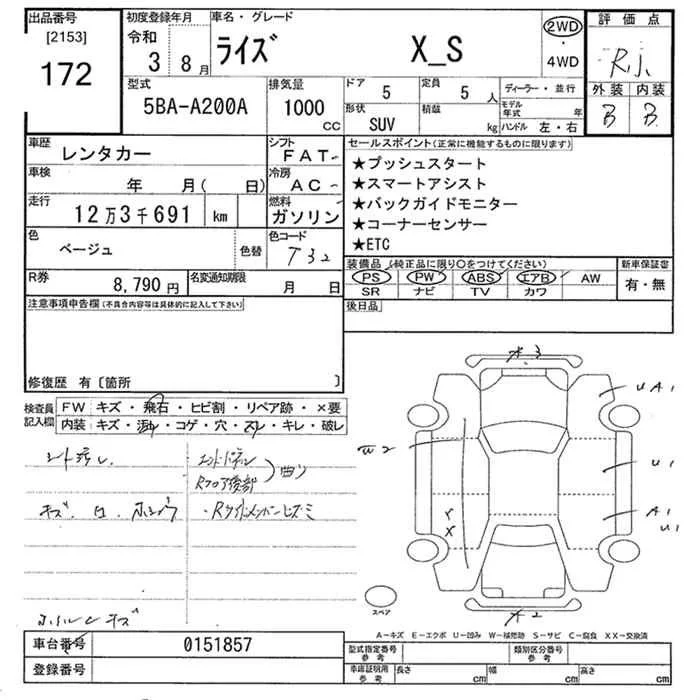 出品番号
[2153]
172
初度登録年月
令和
3 8月
車名・グレード
ライズ X_S
2WD
・
4WD
評価点
R小
外装 内装
B B
型式
5BA-A200A
排気量
1000
CC
ドア
5
定員
5 人
ディーラー・並行
形状
SUV
積載
kg
モデル年式 年
ハンドル 左・右
車歴
レンタカー
シフト
FAT
車検
年 月( 日)
冷房
AC
走行
12万3千691 km
燃料
ガソリン
色
ベージュ
色替
色コード
T32
R券
8,790 円
名変通知期限
月 日
セールスポイント(正常に機能するものに限ります)
★プッシュスタート
★スマートアシスト
★バックガイドモニター
★コーナーセンサー
★ETC
装備品 (純正品に限り○をつけてください)
PS PW ABS エアB AW
SR ナビ TV カワ
新車保証書
有・無
注意事項申告欄(不具合内容等は具体的に記入して下さい)
後日品
修復歴 有〔箇所 〕
検査員記入欄
FW キズ・飛石・ヒビ割・リペア跡・×要
内装 キズ・汚れ・コゲ・穴・スレ・キレ・破レ
シート汚レ
Rフロア後部
曲り
キズ
ホイルキズ
3
UA1
W2
U1
A1
U1
X
2
スペア
A-キズ E-エクボ U-凹み W-補修跡 S-サビ C-腐食 XX-交換済
車台番号
0151857
登録番号
型式指定番号
参考
類別区分番号
参考
車庫証明用
参考
長さ cm
幅 cm
高さ cm